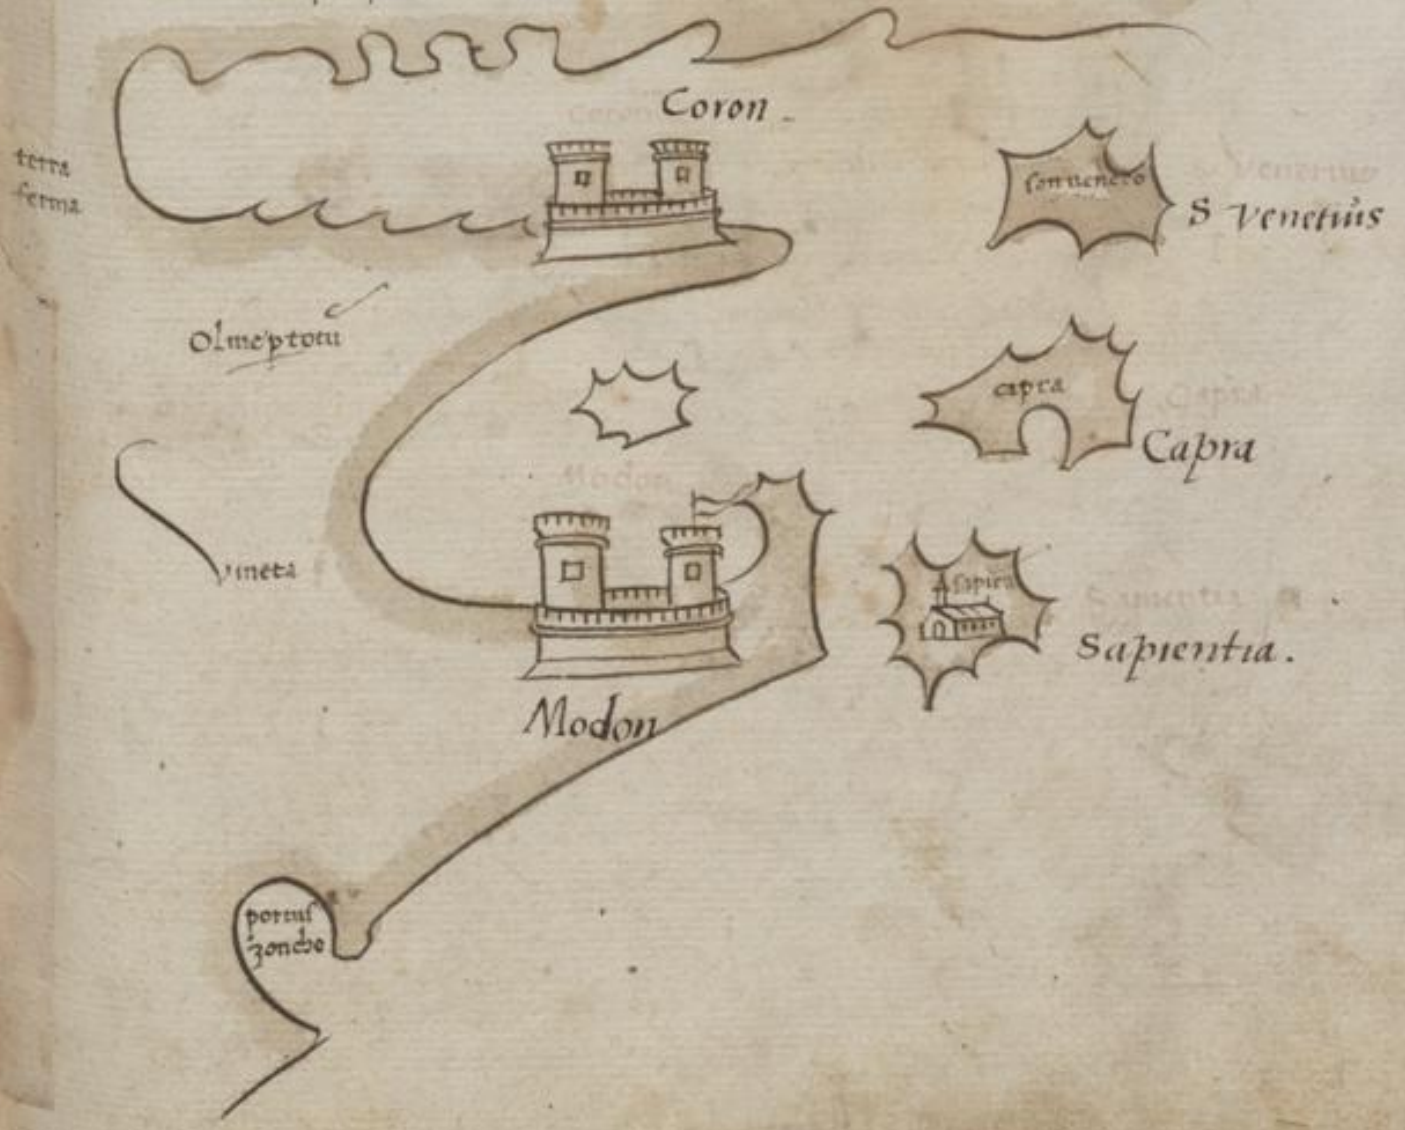 Coron
terra
ferma
son venerio
S Venetius
Olmeptotu
capra
Capra
vineta
Asapien
Sapientia.
Modon
portus
zoncho